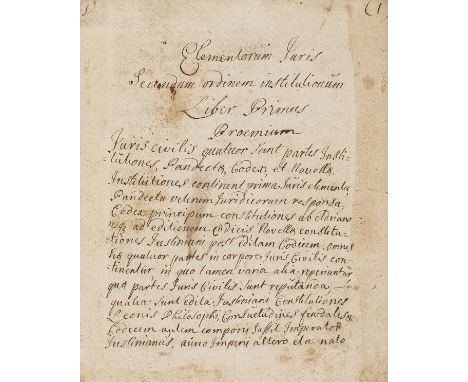 Elementorum Juris
Secundum ordinem institutionum
Liber Primus
Proemium
Juris civilis quatuor sunt partes Insti-
tutiones, Pandecta, Codex, et Novella,
Institutiones continent prima Juris elementa
Pandecta veterum Juridicorum responsa,
Codex principum constitutiones ab Adriano
usq ad editionem Codicis Novella constitu-
tiones Justiniani post editam Codicem, omnes
his quatuor partes in corpore Juris Civilis con-
tinentur in quo tamen varia alia reperiuntur
qua partes Juris Civilis sunt reputanda,
qualia sunt edita Justiniani Constitutiones
Leonis Philosophi, Consuetudines feudales
Codicem autem componi jussit Imperator
Justinianus, anno Imperii altero eta nato